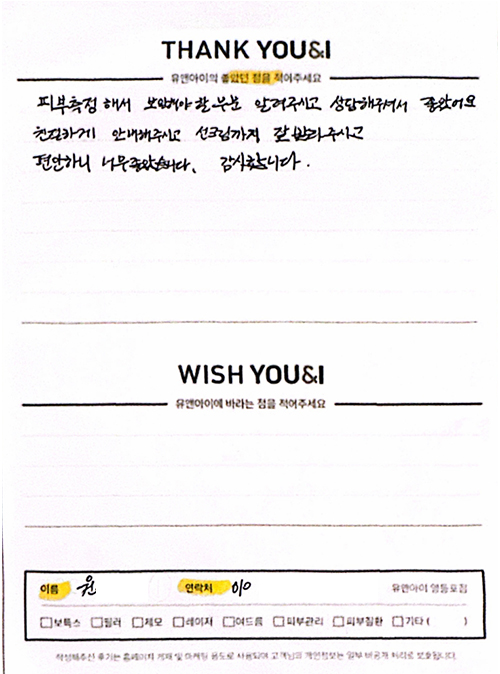 THANK YOU&I
유앤아이의 좋았던 점을 적어주세요
피부측정 해서 보완해야 할 부분 알려주시고 상담해주셔서 좋았어요
친절하게 안내해주시고 선크림까지 잘 발라주시고
편안하니 너무좋았습니다. 감사합니다.
WISH YOU&I
유앤아이에 바라는 점을 적어주세요
이름 원 연락처 010 유앤아이 영등포점
보톡스 필러 제모 레이저 여드름 피부관리 피부질환 기타 ( )
작성해주신 후기는 홈페이지 게재 및 마케팅 용도로 사용되며 고객님의 개인정보는 일부 비공개 처리로 보호됩니다.